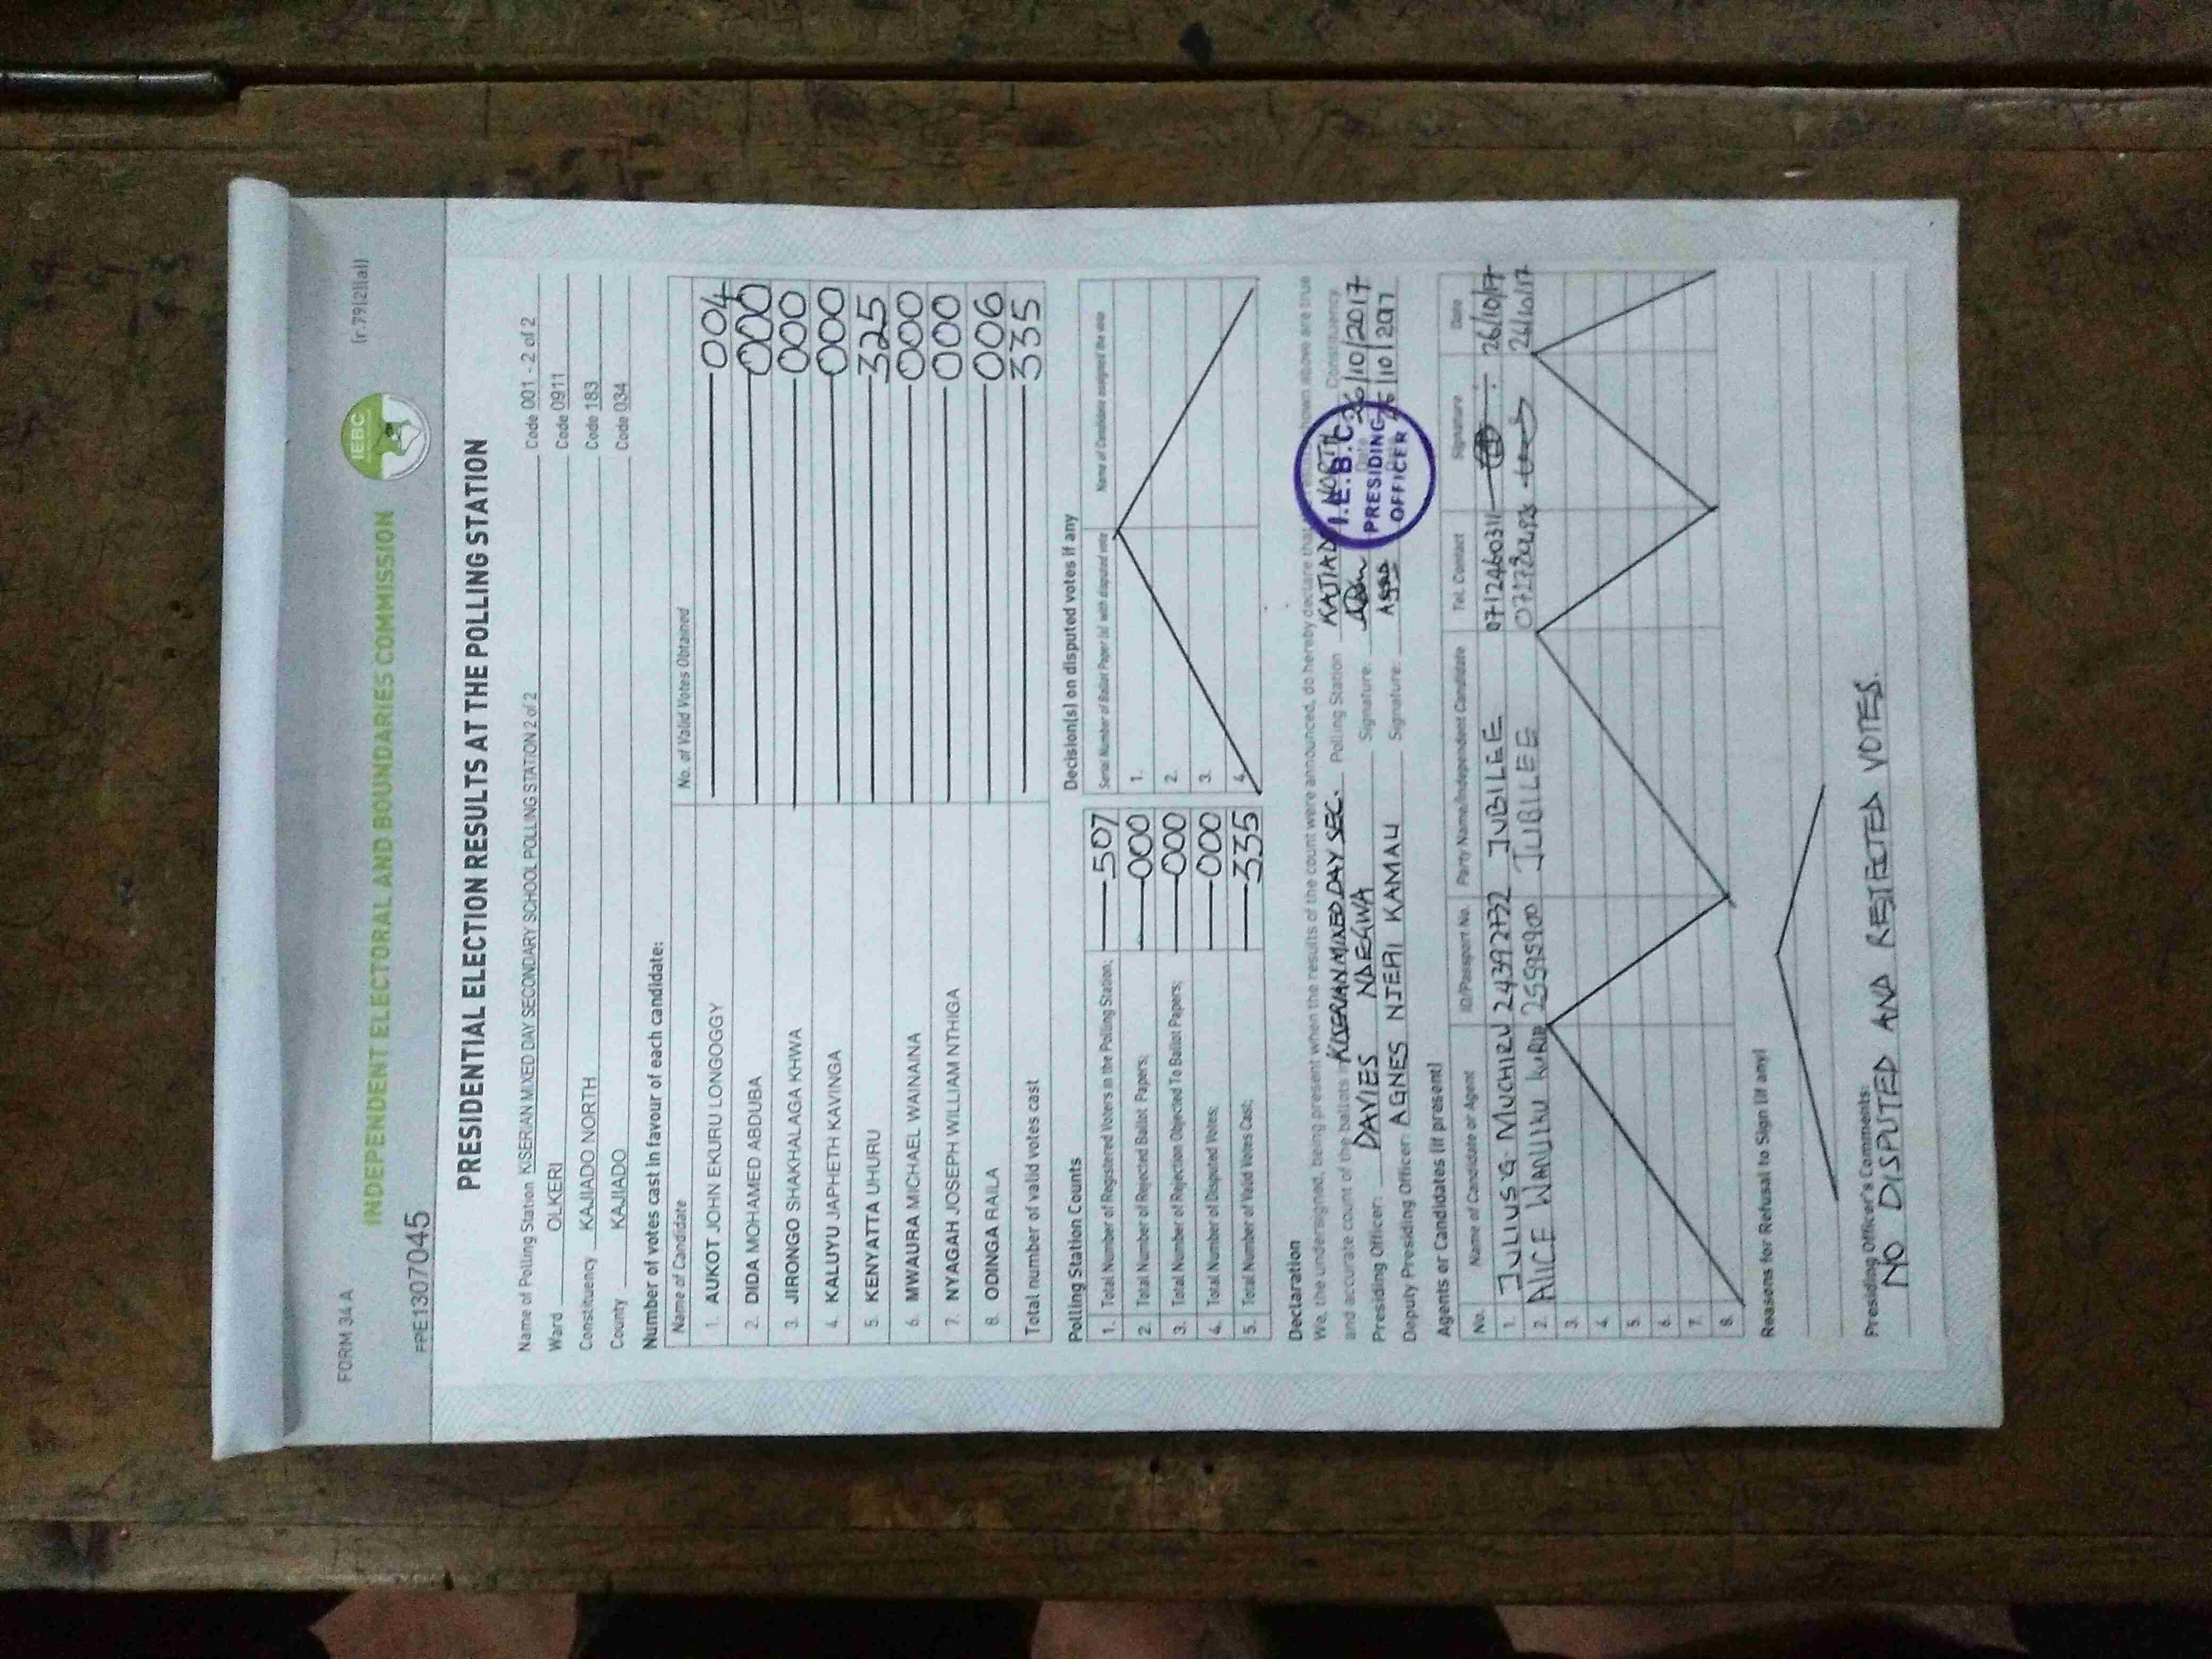 FORM 34 A
(r.79(2)(a))
IEBC
INDEPENDENT ELECTORAL AND BOUNDARIES COMMISSION
PRE1307045
PRESIDENTIAL ELECTION RESULTS AT THE POLLING STATION
Name of Polling Station KISERIAN MIXED DAY SECONDARY SCHOOL POLLING STATION 2 of 2 Code 001 - 2 of 2
Ward OLKERI Code 0911
Constituency KAJIADO NORTH Code 183
County KAJIADO Code 034
Number of votes cast in favour of each candidate:
Name of Candidate No. of Valid Votes Obtained
1. AUKOT JOHN EKURU LONGOGGY 004
2. DIDA MOHAMED ABDUBA 000
3. JIRONGO SHAKHALAGA KHWA 000
4. KALUYU JAPHETH KAVINGA 000
5. KENYATTA UHURU 325
6. MWAURA MICHAEL WAINAINA 000
7. NYAGAH JOSEPH WILLIAM NTHIGA 000
8. ODINGA RAILA 006
Total number of valid votes cast 335
Polling Station Counts
1. Total Number of Registered Voters in the Polling Station; 507
2. Total Number of Rejected Ballot Papers; 000
3. Total Number of Rejection Objected To Ballot Papers; 000
4. Total Number of Disputed Votes; 000
5. Total Number of Valid Votes Cast; 335
Decision(s) on disputed votes if any
Serial Number of Ballot Paper (s) with disputed vote Name of Candidate assigned the vote
1.
2.
3.
4.
Declaration
We, the undersigned, being present when the results of the count were announced, do hereby declare that shown above are true
and accurate count of the ballots in KISERIAN MIXED DAY SEC. Polling Station KAJIADO NORTH Constituency
Presiding Officer: DAVIES NDEGWA Signature: Date 26/10/2017
Deputy Presiding Officer: AGNES NJERI KAMAU Signature: 26/10/2017
I.E.B.C.
PRESIDING
OFFICER
Agents or Candidates (if present)
No. Name of Candidate or Agent ID/Passport No. Party Name/Independent Candidate Tel. Contact Signature Date
1. JULIUS G. MUCHIRU 24392732 JUBILEE 0712460311 26/10/17
2. ALICE WANJIKU 25595900 JUBILEE 26/10/17
3.
4.
5.
6.
7.
8.
Reasons for Refusal to Sign (if any)
Presiding Officer's Comments:
NO DISPUTED AND REJECTED VOTES.